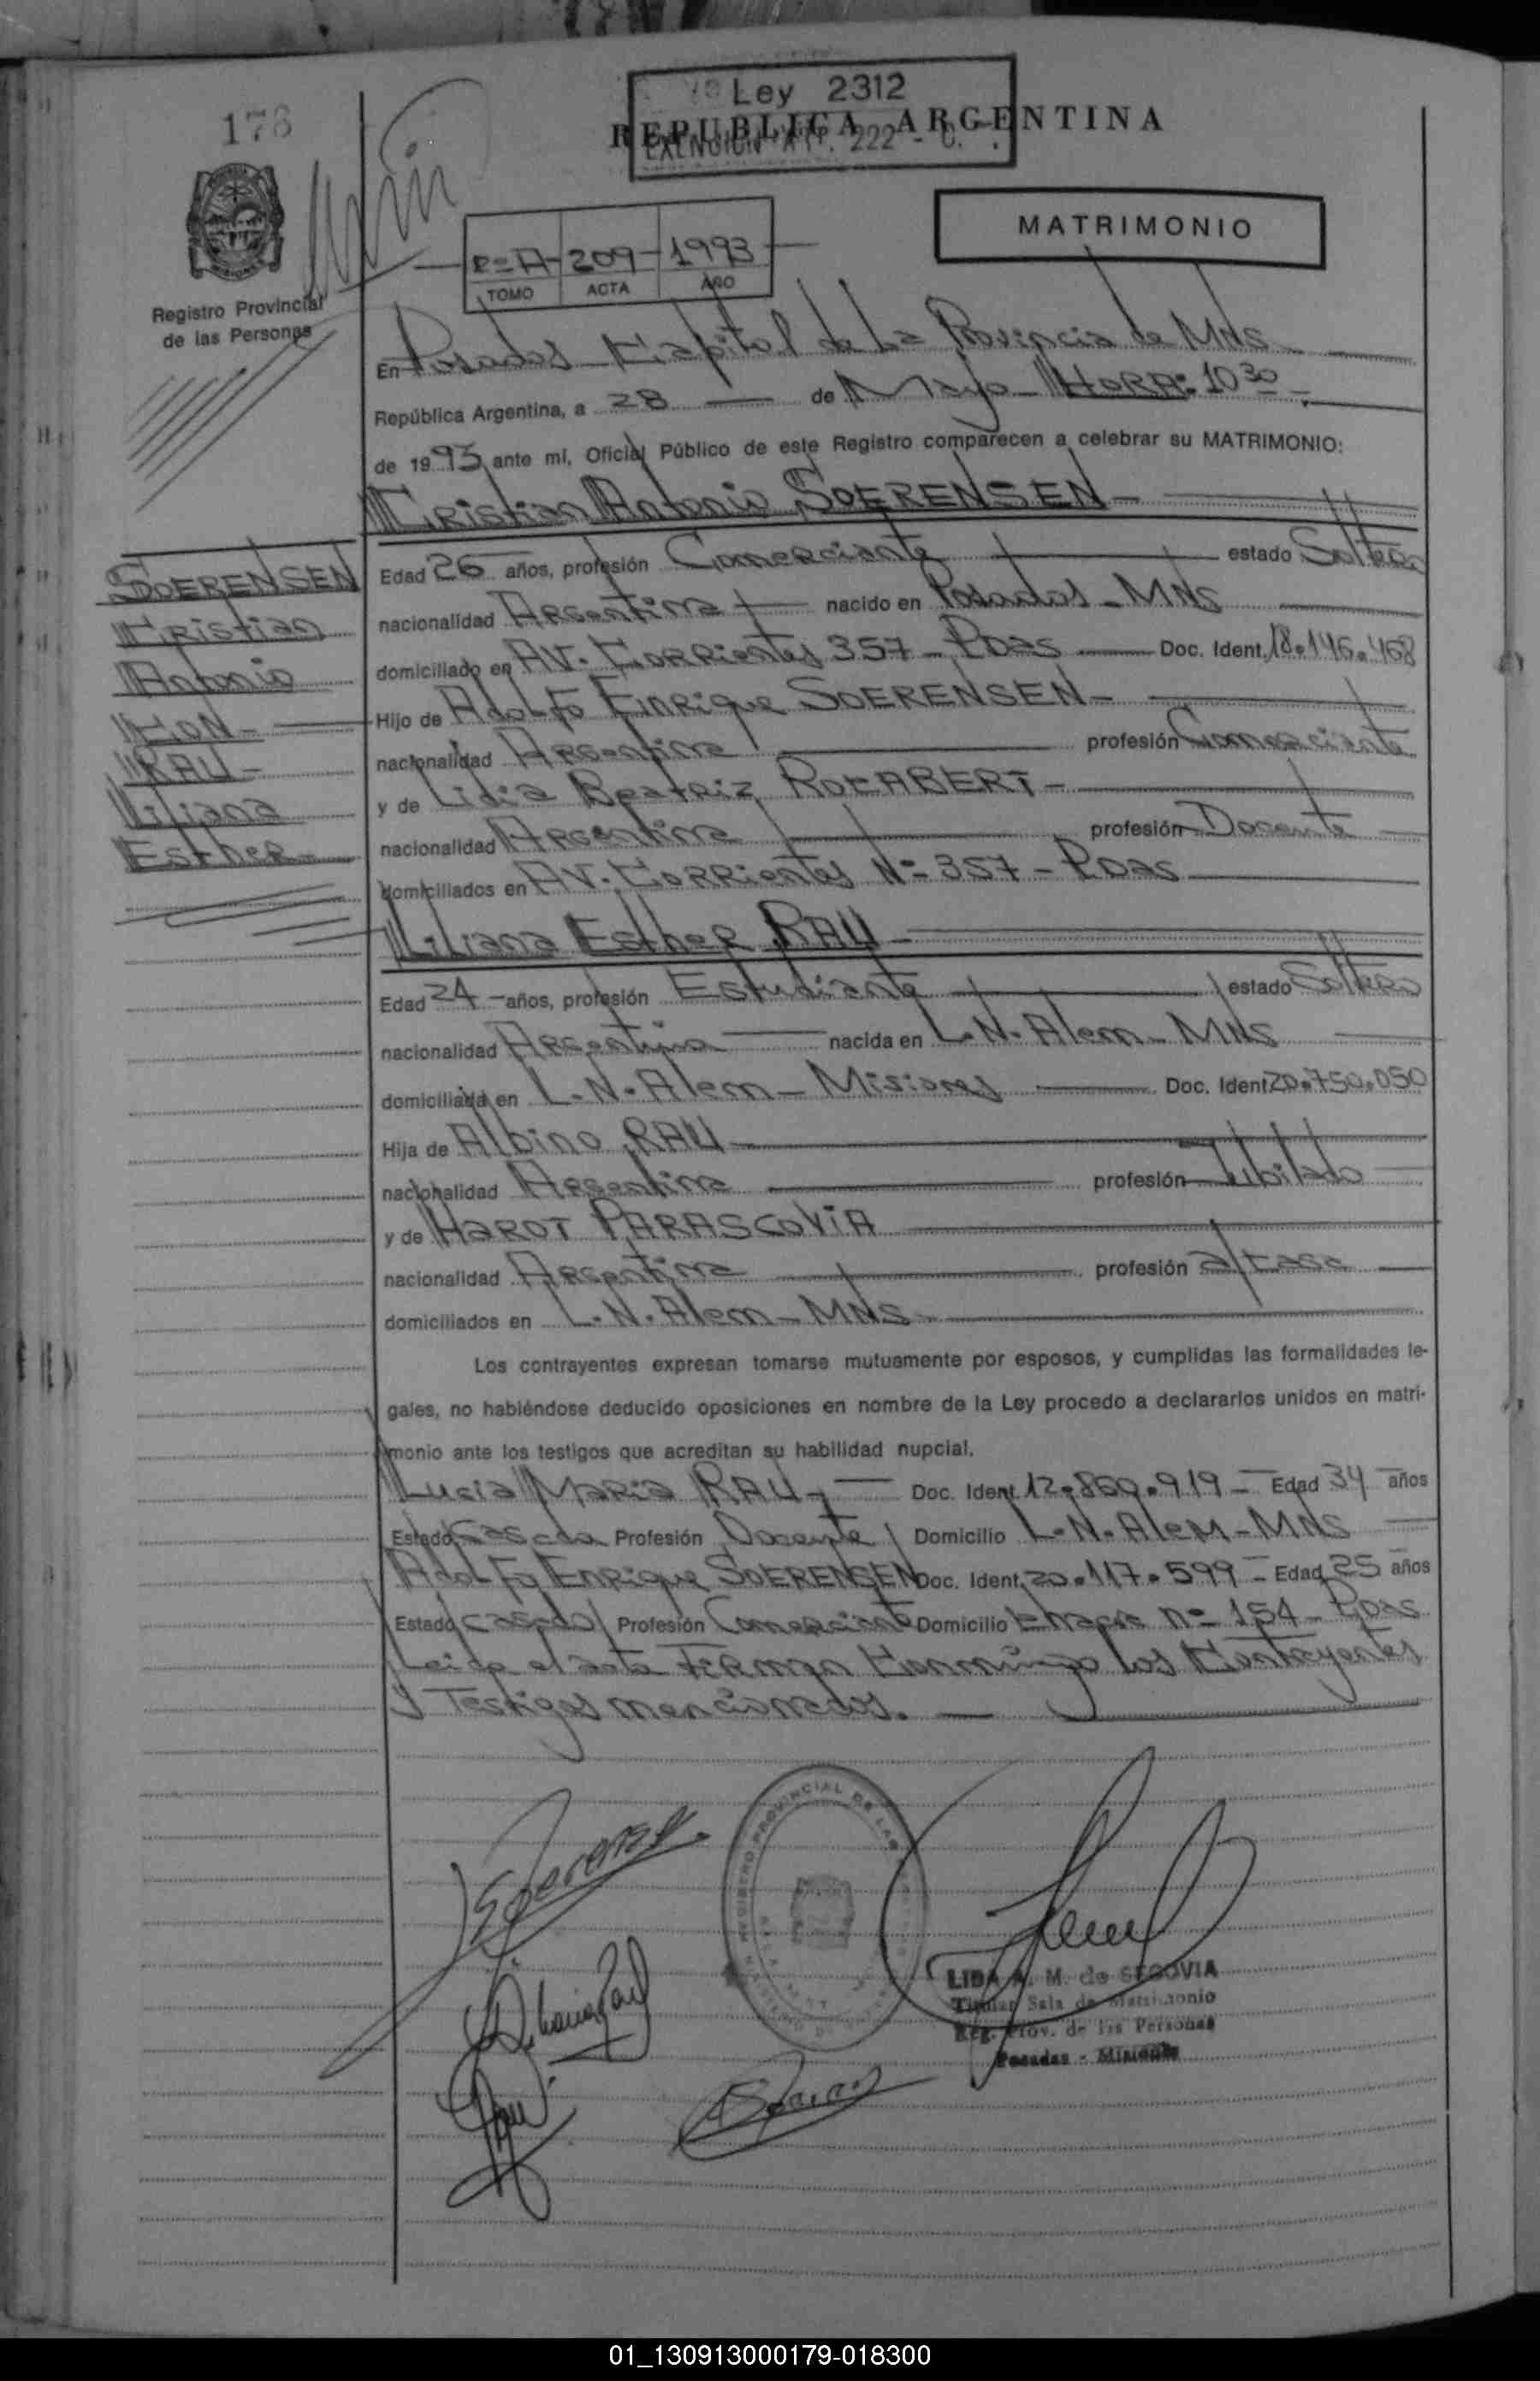 178
Ley 2312
REPUBLICA ARGENTINA
EXENCION 222 - C.
MATRIMONIO
2º A - 209 - 1993
TOMO ACTA AÑO
Registro Provincial
de las Personas
En Posadas Capital de La Provincia de Mnes
República Argentina, a 28 de Mayo HORA: 10 30
de 1993 ante mí, Oficial Público de este Registro comparecen a celebrar su MATRIMONIO:
Cristian Antonio SOERENSEN
SOERENSEN
Cristian
Antonio
CON
RAU
Liliana
Esther
Edad 26 años, profesión Comerciante estado Soltero
nacionalidad Argentina nacido en Posadas - MNS
domiciliado en AV. Corrientes 357 - PDAS Doc. Ident. 18.146.468
Hijo de Adolfo Enrique SOERENSEN
nacionalidad Argentina profesión Comerciante
y de Lidia Beatriz ROCABERT
nacionalidad Argentina profesión Docente
domiciliados en AV. Corrientes Nº 357 - PDAS
Liliana Esther RAU
Edad 24 años, profesión Estudiante estado Soltera
nacionalidad Argentina nacida en L.N. Alem - MNS
domiciliada en L.N. Alem - Misiones Doc. Ident. 20.750.050
Hija de Albino RAU
nacionalidad Argentina profesión Jubilado
y de HAROT PARASCOVIA
nacionalidad Argentina profesión a/casa
domiciliados en L.N. Alem - MNS
Los contrayentes expresan tomarse mutuamente por esposos, y cumplidas las formalidades le-
gales, no habiéndose deducido oposiciones en nombre de la Ley procedo a declararlos unidos en matri-
monio ante los testigos que acreditan su habilidad nupcial.
Lucia Maria RAU Doc. Ident. 12.860.919 Edad 34 años
Estado Casada Profesión Docente Domicilio L.N. Alem - MNS
Adolfo Enrique SOERENSEN Doc. Ident. 20.117.599 Edad 25 años
Estado casado Profesión Comerciante Domicilio nº 154 - Pdas
Leida el acta Firman Conmigo los Contrayentes
y Testigos mencionados.
REGISTRO PROVINCIAL DE LAS
LIDA A. M. de SEGOVIA
Titular Sala de Matrimonio
Reg. Prov. de las Personas
Posadas - Misiones
01_130913000179-018300